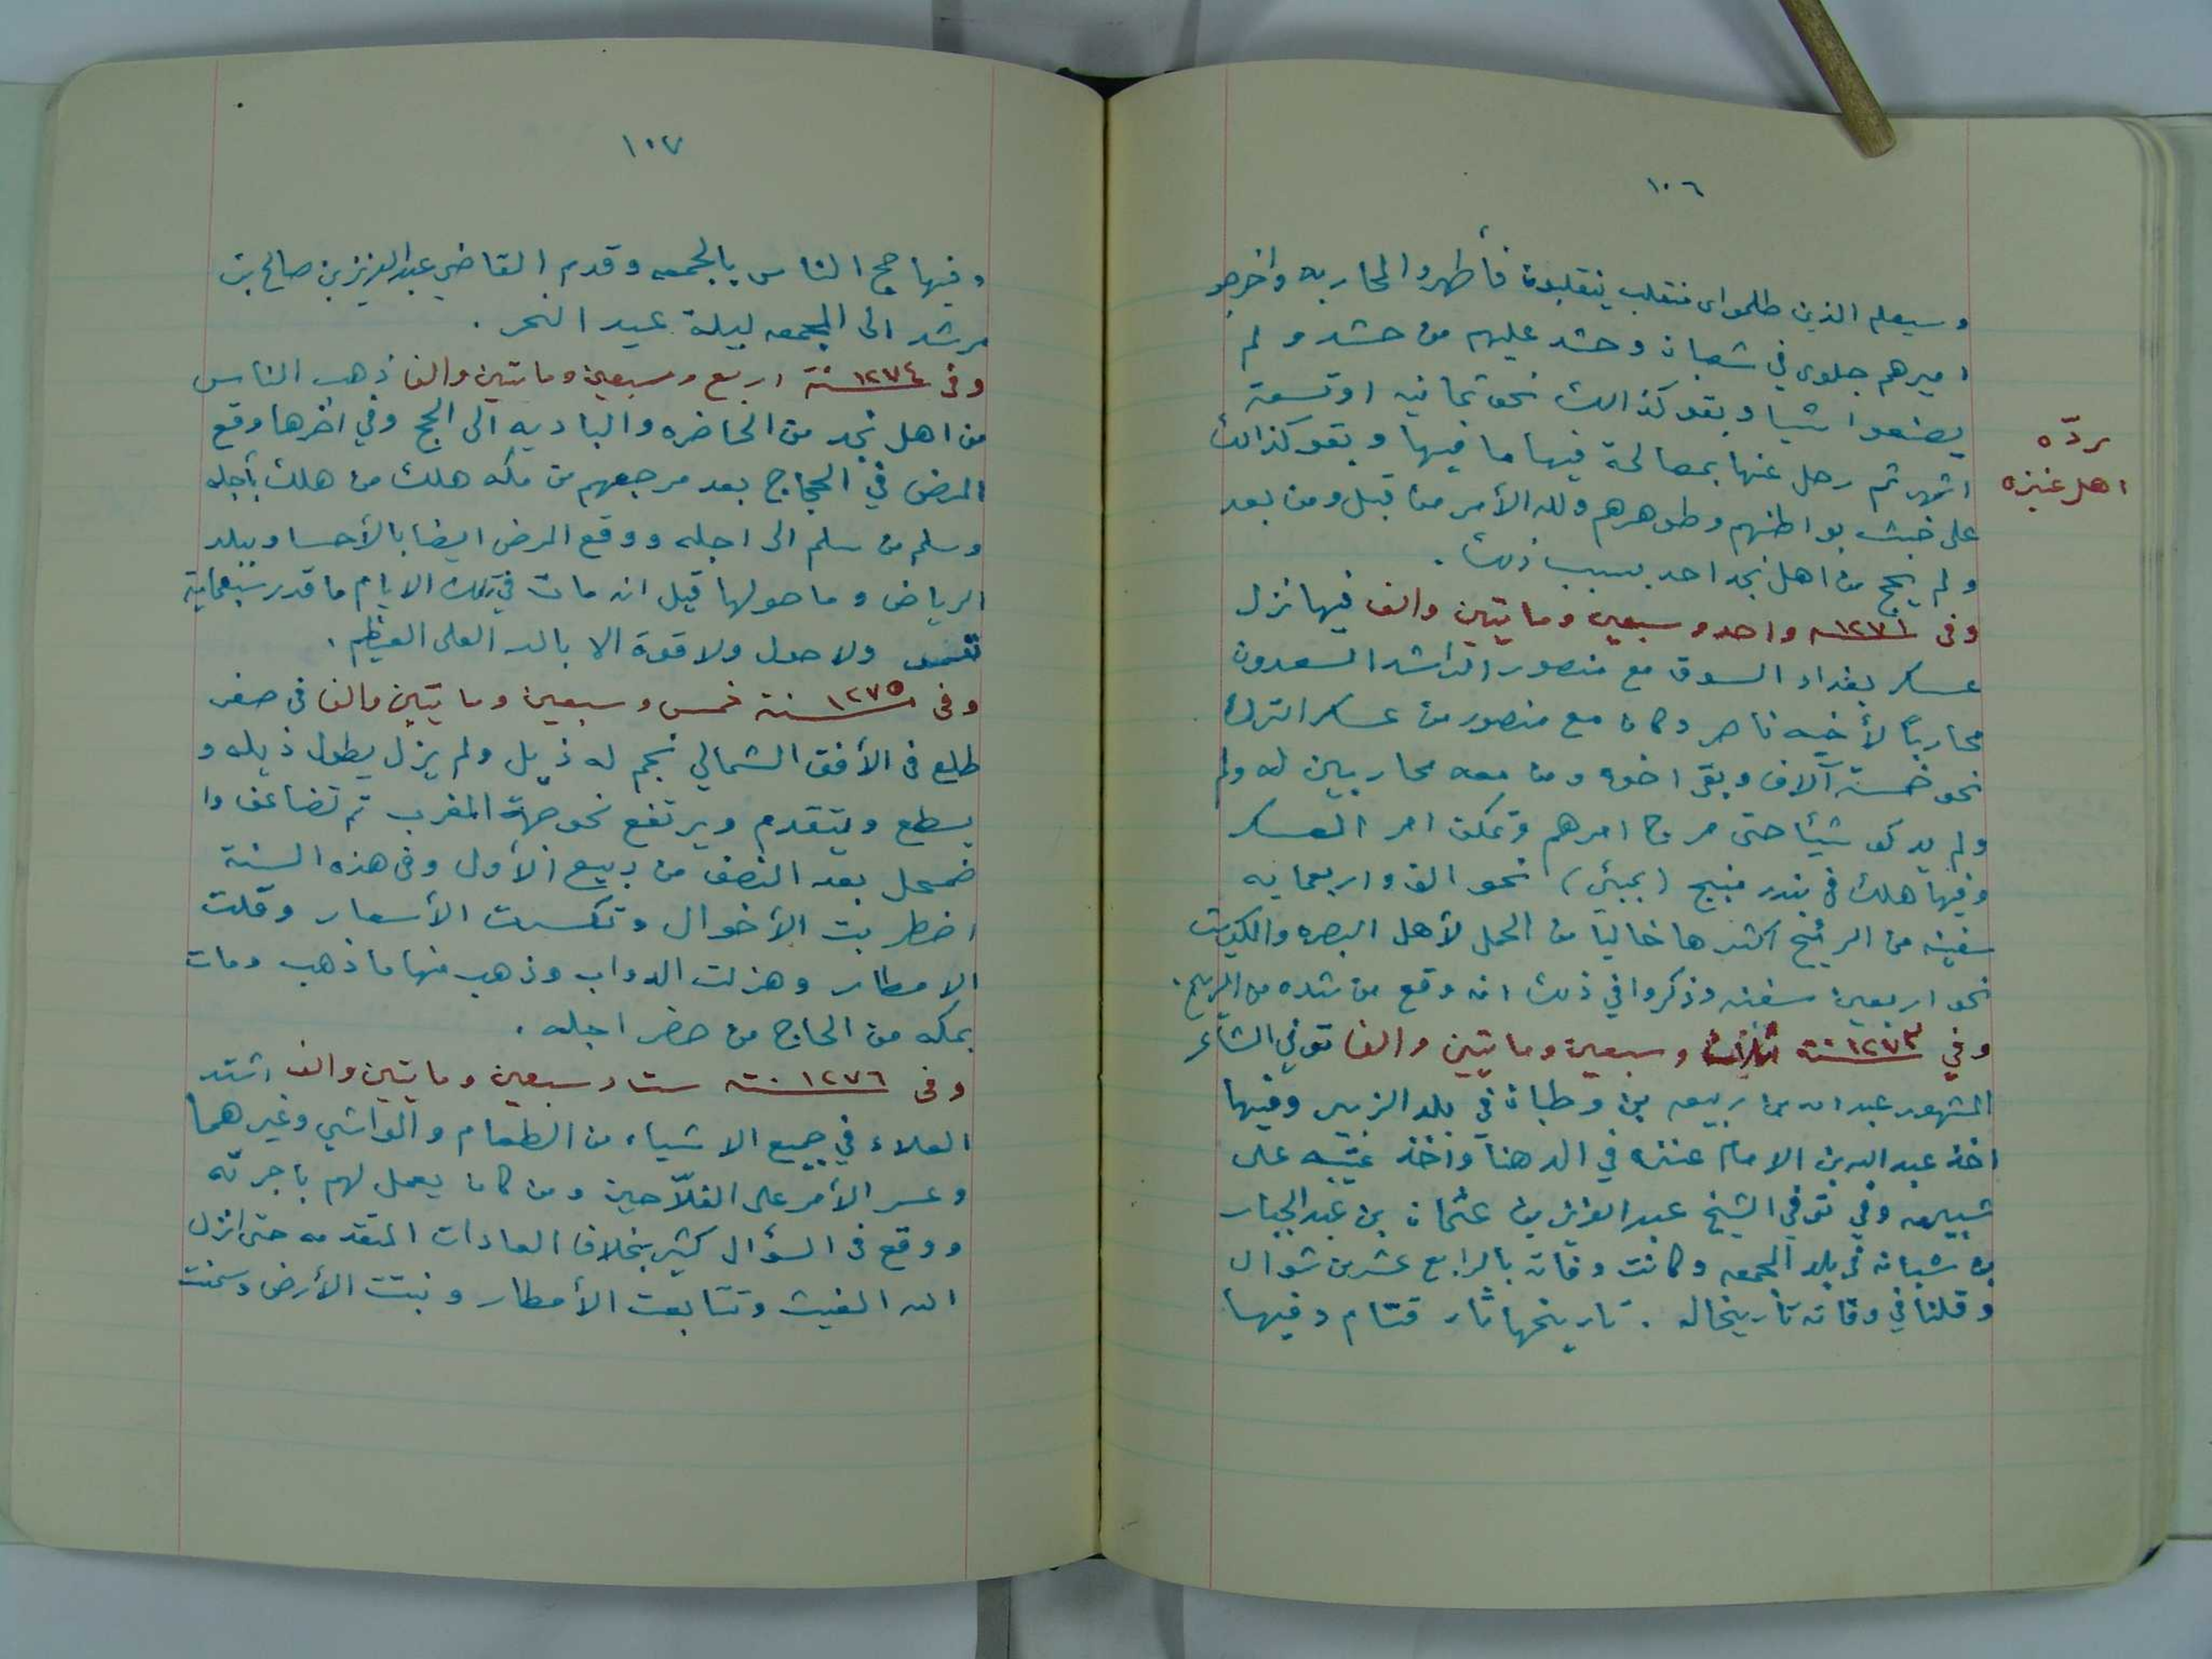 ١٠٦
وسيعلم الذين ظلموا اى منقلب ينقلبون فأظهروا المحاربه واخرجو
اميرهم جلوى في شعبان وحشد عليهم من حشد ولم
يصنعوا شيا وبقو كذالك نحو ثمانيه اوتسعة
ردّه
اهل عنيزه
اشهر ثم رحل عنها بمصالحة فيها ما فيها وبقو كذالك
على خبث بواطنهم وظوهرهم ولله الأمر من قبل ومن بعد
ولم يحج من اهل نجد احد بسبب ذلك .
وفى ١٢٧١ﻪ واحد وسبعين ومايتين والف فيها نزل
عسكر بغداد السوق مع منصور الراشد السعدون
محارباً لأخيه ناصر وكان مع منصور من عسكر الترك
نحو خمسة آلاف وبقى اخوه ومن معه محاربين له ولم
ولم يدركو شيئا حتى مرج امرهم وتمكن امر العسكر
وفيها هلك فى بندر منبج (بمبئ) نحو الف واربعمايه
سفينه من الريح اكثرها خاليا من الحمل لأهل البصره والكويت
نحو اربعين سفينه وذكروا في ذلك انه وقع من شده من الريح .
وفي ١٢٧٣ سنة ثلاث وسبعين ومايتين والف توفي الشاعر
المشهور عبد الله بن ربيعه بن وطبان في بلد الزبير وفيها
اخذ عبد الله بن الامام عنزه في الدهنا واخذ عتيبه على
شبيرمه وفي توفي الشيخ عبد العزيز بن عثمان بن عبد الجبار
بن شبانه فى بلد المجمعه وكانت وفاته بالرابع عشر من شوال
وقلنا في وفاته تأريخاله . تاريخها ثار قتام وفيها
١٠٧
وفيها حج الناس بالجمعه وقدم القاضي عبد العزيز بن صالح بن
مرشد الى المجمعه ليلة عيد النحر .
وفى ١٢٧٤ سنة اربع وسبعين ومايتين والف ذهب الناس
من اهل نجد من الحاضره والباديه الى الحج وفي اخرها وقع
المرض في الحجاج بعد مرجعهم من مكه هلك من هلك بأجله
وسلم من سلم الى اجله ووقع المرض ايضا بالأحسا وببلد
الرياض وما حولها قيل انه مات في تلك الايام ما قدر سبعماية
نفس ولا حول ولا قوة الا بالله العلى العظيم .
وفى ١٢٧٥ سنة خمس وسبعين ومايتين والف فى صفر
طلع فى الأفق الشمالي نجم له ذيل ولم يزل يطول ذيله و
يسطع ويتقدم ويرتفع نحو جهة المغرب ثم تضاعف وا
ضمحل بعد النصف من ربيع الأول وفى هذه السنة
اضطربت الأخوال وتكسرت الأسعار وقلت
الامطار وهزلت الدواب وذهب منها ما ذهب ومات
بمكه من الحاج من حضر اجله .
وفى ١٢٧٦ سنة ست وسبعين ومايتين والف اشتد
الغلاء في جميع الاشياء من الطعام والمواشي وغيرهما
وعسر الأمر على الفلاّحين ومن كان يعمل لهم باجرته
ووقع فى السؤال كثير بخلاف العادات المتقدمه حتى انزل
الله الغيث وتتابعت الأمطار ونبتت الأرض وسمنت